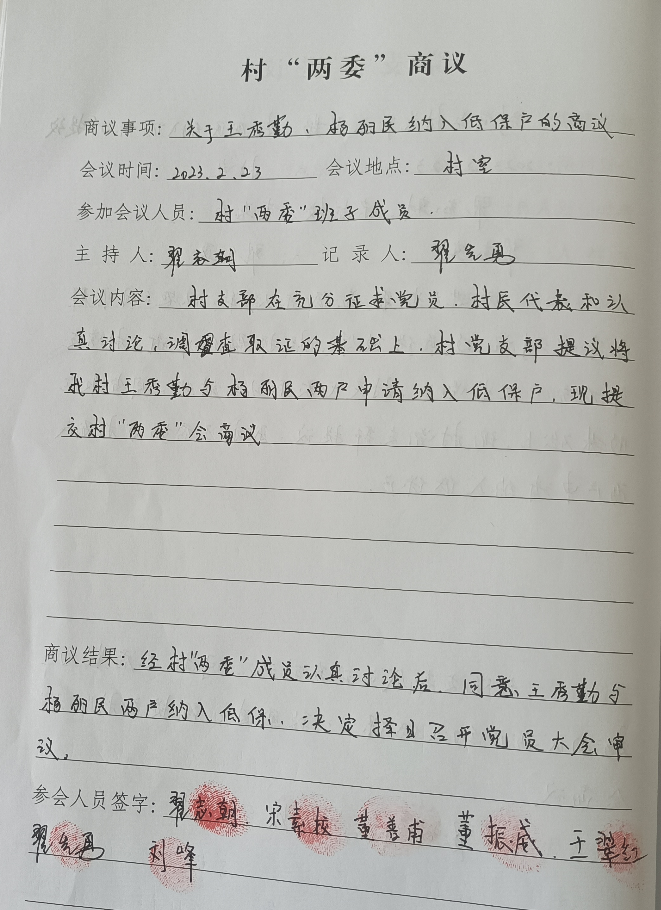 村“两委”商议
商议事项：关于王秀勤、杨丽民纳入低保户的商议
会议时间：2023.2.23 会议地点：村室
参加会议人员：村“两委”班子成员
主持人：翟志朝 记录人：翟先勇
会议内容：村支部在充分征求党员、村民代表和认
真讨论，调查取证的基础上，村党支部提议将
我村王秀勤与杨丽民两户申请纳入低保户，现提
交村“两委”会商议
商议结果：经村“两委”成员认真讨论后，同意王秀勤与
杨丽民两户纳入低保，决定择日召开党员大会审
议。
参会人员签字：翟志朝 宋素校 董善甫 董振威 王翠红
翟先勇 刘峰